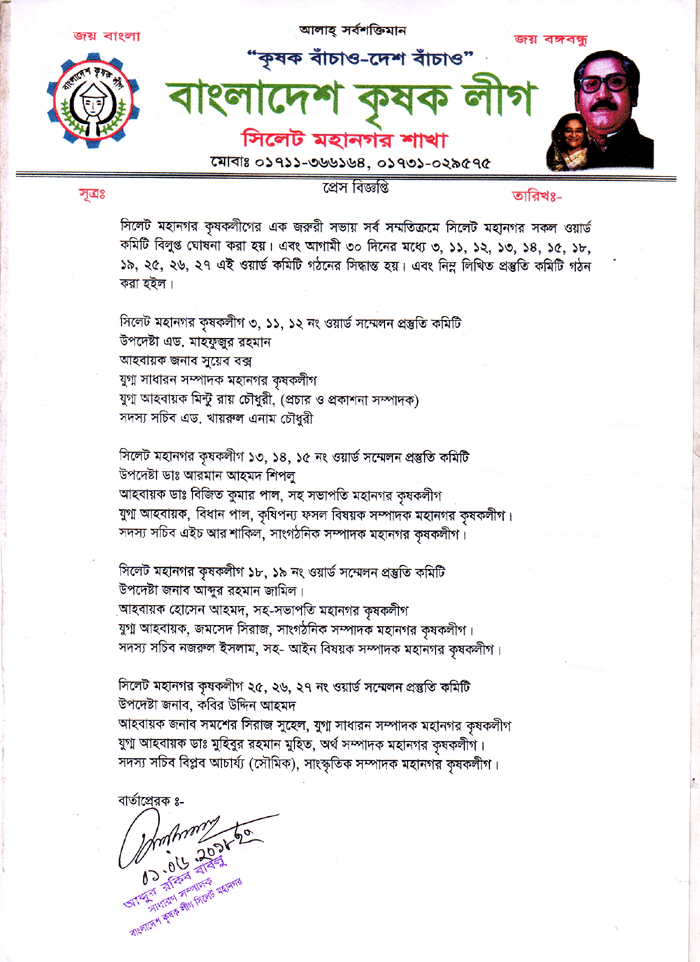 জয় বাংলা
আলাহ্ সর্বশক্তিমান
জয় বঙ্গবন্ধু
“কৃষক বাঁচাও-দেশ বাঁচাও”
বাংলাদেশ কৃষক লীগ
বাংলাদেশ কৃষক লীগ
সিলেট মহানগর শাখা
মোবাঃ ০১৭১১-৩৬৬১৬৪, ০১৭৩১-০২৯৫৭৫
সূত্রঃ
প্রেস বিজ্ঞপ্তি
তারিখঃ-
সিলেট মহানগর কৃষকলীগের এক জরুরী সভায় সর্ব সম্মতিক্রমে সিলেট মহানগর সকল ওয়ার্ড
কমিটি বিলুপ্ত ঘোষনা করা হয়। এবং আগামী ৩০ দিনের মধ্যে ৩, ১১, ১২, ১৩, ১৪, ১৫, ১৮,
১৯, ২৫, ২৬, ২৭ এই ওয়ার্ড কমিটি গঠনের সিদ্ধান্ত হয়। এবং নিম্ন লিখিত প্রস্তুতি কমিটি গঠন
করা হইল।
সিলেট মহানগর কৃষকলীগ ৩, ১১, ১২ নং ওয়ার্ড সম্মেলন প্রস্তুতি কমিটি
উপদেষ্টা এড. মাহফুজুর রহমান
আহবায়ক জনাব সুয়েব বক্স
যুগ্ম সাধারন সম্পাদক মহানগর কৃষকলীগ
যুগ্ম আহবায়ক মিন্টু রায় চৌধুরী, (প্রচার ও প্রকাশনা সম্পাদক)
সদস্য সচিব এড. খায়রুল এনাম চৌধুরী
সিলেট মহানগর কৃষকলীগ ১৩, ১৪, ১৫ নং ওয়ার্ড সম্মেলন প্রস্তুতি কমিটি
উপদেষ্টা ডাঃ আরমান আহমদ শিপলু
আহবায়ক ডাঃ বিজিত কুমার পাল, সহ সভাপতি মহানগর কৃষকলীগ
যুগ্ম আহবায়ক, বিধান পাল, কৃষিপন্য ফসল বিষয়ক সম্পাদক মহানগর কৃষকলীগ।
সদস্য সচিব এইচ আর শাকিল, সাংগঠনিক সম্পাদক মহানগর কৃষকলীগ।
সিলেট মহানগর কৃষকলীগ ১৮, ১৯ নং ওয়ার্ড সম্মেলন প্রস্তুতি কমিটি
উপদেষ্টা জনাব আব্দুর রহমান জামিল।
আহবায়ক হোসেন আহমদ, সহ-সভাপতি মহানগর কৃষকলীগ
যুগ্ম আহবায়ক, জমসেদ সিরাজ, সাংগঠনিক সম্পাদক মহানগর কৃষকলীগ।
সদস্য সচিব নজরুল ইসলাম, সহ- আইন বিষয়ক সম্পাদক মহানগর কৃষকলীগ।
সিলেট মহানগর কৃষকলীগ ২৫, ২৬, ২৭ নং ওয়ার্ড সম্মেলন প্রস্তুতি কমিটি
উপদেষ্টা জনাব, কবির উদ্দিন আহমদ
আহবায়ক জনাব সমশের সিরাজ সুহেল, যুগ্ম সাধারন সম্পাদক মহানগর কৃষকলীগ
যুগ্ম আহবায়ক ডাঃ মুহিবুর রহমান মুহিত, অর্থ সম্পাদক মহানগর কৃষকলীগ।
সদস্য সচিব বিপ্লব আচার্য্য (সৌমিক), সাংস্কৃতিক সম্পাদক মহানগর কৃষকলীগ।
বার্তাপ্রেরক ঃ-
আব্দুর রকিব বাবলু
সাধারণ সম্পাদক
বাংলাদেশ কৃষক লীগ সিলেট মহানগর